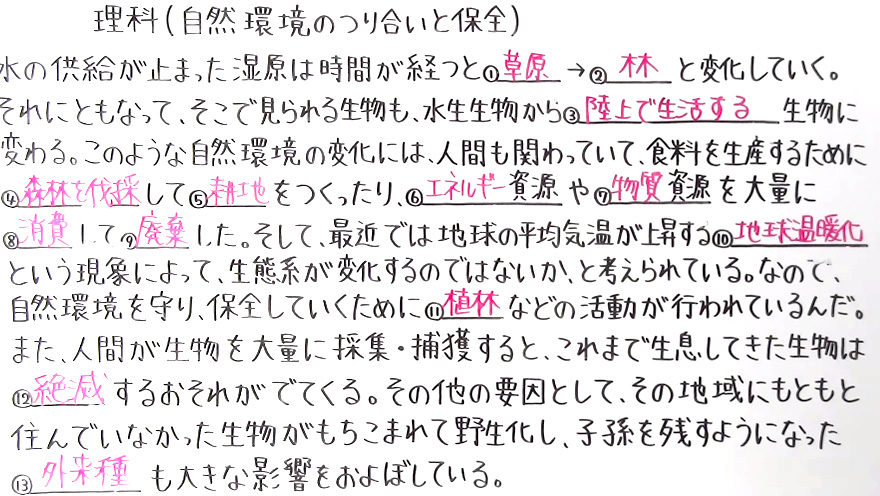 理科(自然環境のつり合いと保全)
水の供給が止まった湿原は時間が経つと①草原→②林と変化していく。
それにともなって、そこで見られる生物も、水生生物から③陸上で生活する生物に
変わる。このような自然環境の変化には、人間も関わっていて、食料を生産するために
④森林を伐採して⑤耕地をつくったり、⑥エネルギー資源や⑦物質資源を大量に
⑧消費して⑨廃棄した。そして、最近では地球の平均気温が上昇する⑩地球温暖化
という現象によって、生態系が変化するのではないか、と考えられている。なので、
自然環境を守り、保全していくために⑪植林などの活動が行われているんだ。
また、人間が生物を大量に採集・捕獲すると、これまで生息してきた生物は
⑫絶滅するおそれがでてくる。その他の要因として、その地域にもともと
住んでいなかった生物がもちこまれて野生化し、子孫を残すようになった
⑬外来種も大きな影響をおよぼしている。